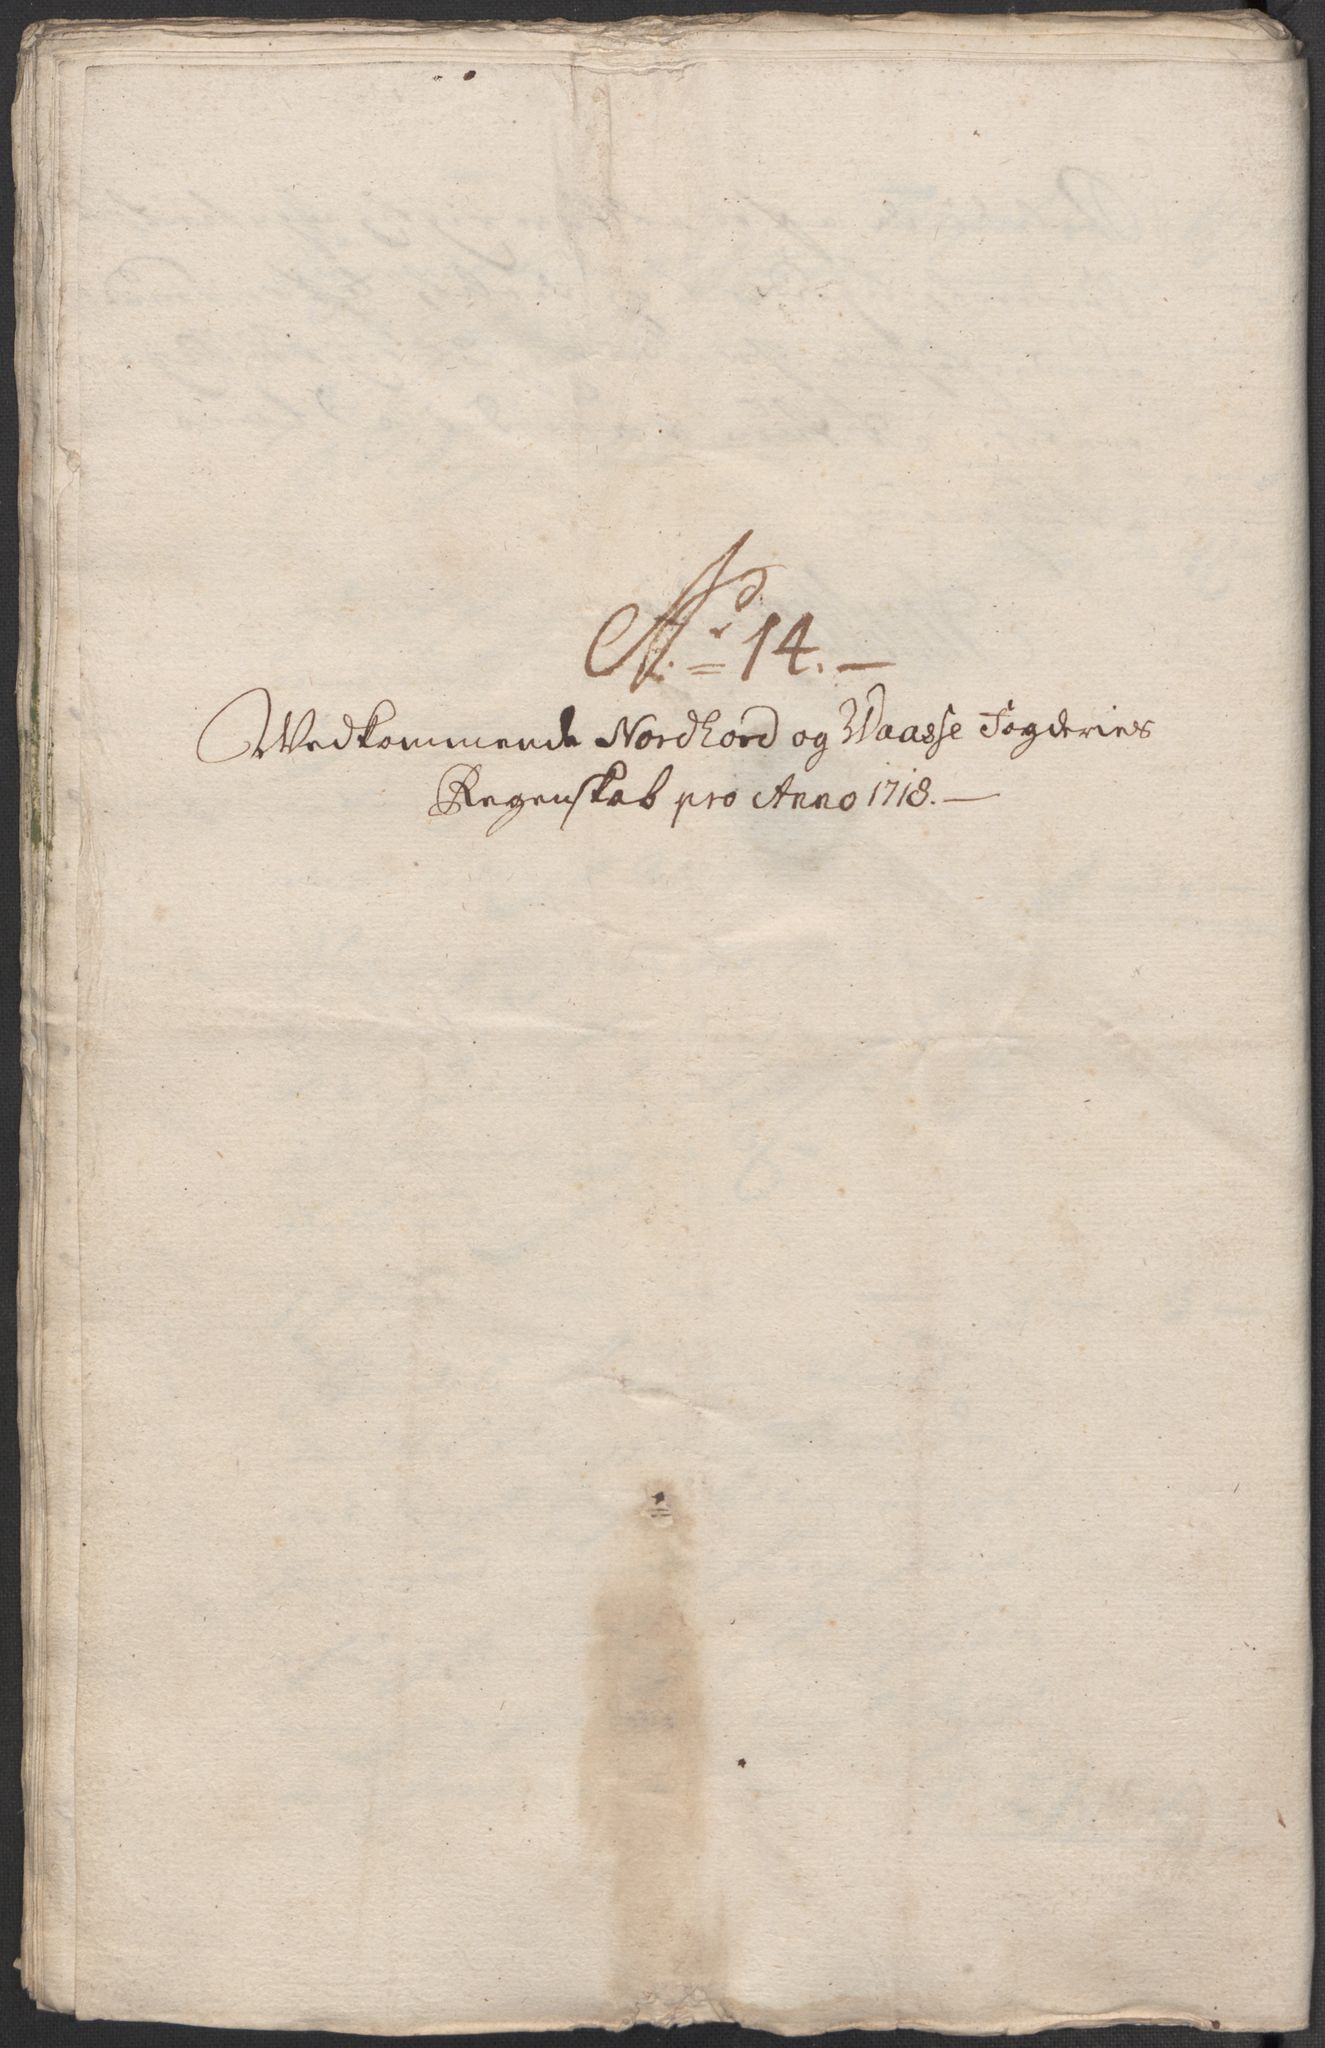 No: 14. —
Vedkommende Nordhord og Waasse Fogderies
Regenskab pro Anno 1718. —